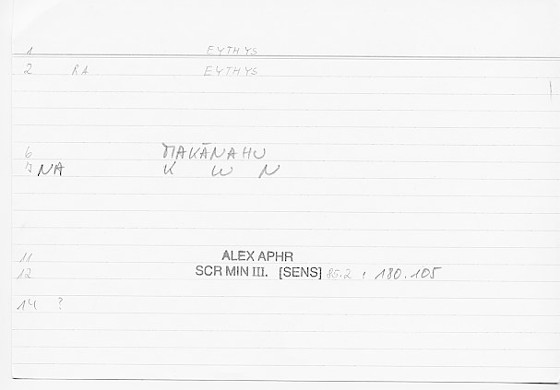 1 EYTHYS
2 RA EYTHYS
6 MAKĀNAHU
7 NA K W N
11 ALEX APHR
12 SCR MIN III. [SENS] 85.2, 180.105
14 ?